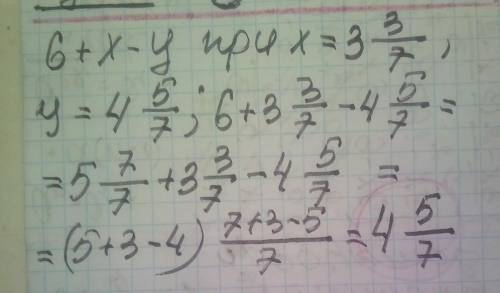 6 + x - y при x = 3 3/7,
y = 4 5/7; 6 + 3 3/7 - 4 5/7 =
= 5 7/7 + 3 3/7 - 4 5/7 =
= (5 + 3 - 4) (7 + 3 - 5)/7 = 4 5/7